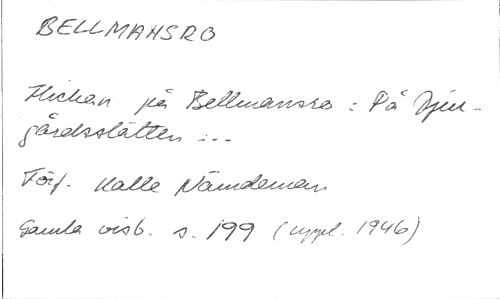 BELLMANSRO
Flickan på Bellmansro : På Djur-
gårdsslätten ...
Förf. Kalle Nämdeman
Gamla visb. s. 199 (uppl. 1946)